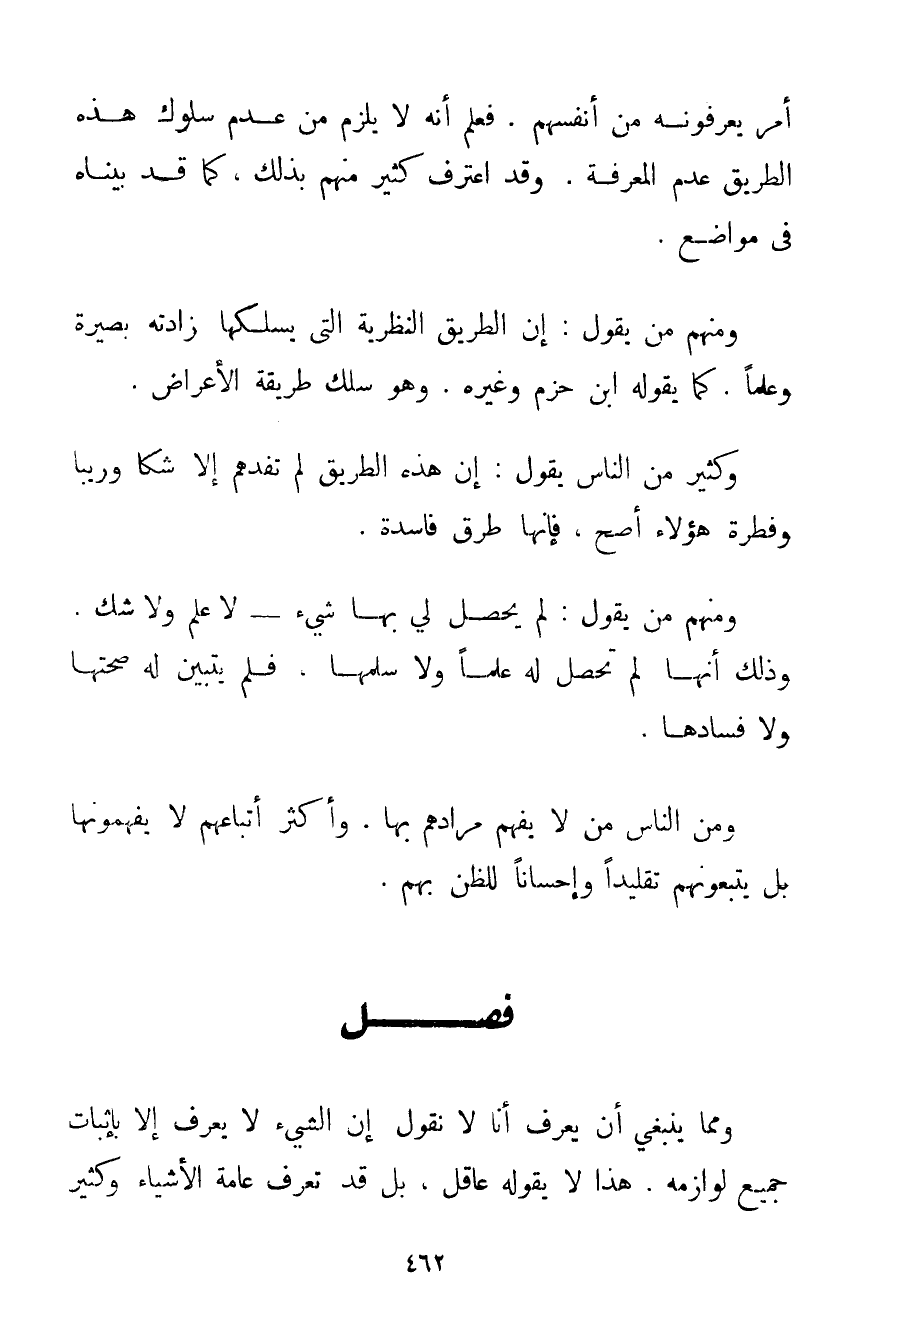 أمر يعرفونه من أنفسهم . فعلم أنه لا يلزم من عدم سلوك هذه
الطريق عدم المعرفة . وقد اعترف كثير منهم بذلك ، كما قد بيناه
فى مواضع .
ومنهم من يقول : إن الطريق النظرية التى يسلكها زادته بصيرة
وعلماً . كما يقوله ابن حزم وغيره . وهو سلك طريقة الأعراض .
وكثير من الناس يقول : إن هذه الطريق لم تفدهم إلا شكا وريبا
وفطرة هؤلاء أصح ، فإنها طرق فاسدة .
ومنهم من يقول : لم يحصل لي بها شيء — لا علم ولا شك .
وذلك أنها لم تحصل له علماً ولا سلمها . فلم يتبين له صحتها
ولا فسادها .
ومن الناس من لا يفهم مرادهم بها . وأكثر أتباعهم لا يفهمونها
بل يتبعونهم تقليداً وإحساناً للظن بهم .
فصل
ومما ينبغي أن يعرف أنا لا نقول إن الشيء لا يعرف إلا بإثبات
جميع لوازمه . هذا لا يقوله عاقل ، بل قد تعرف عامة الأشياء وكثير
٤٦٢